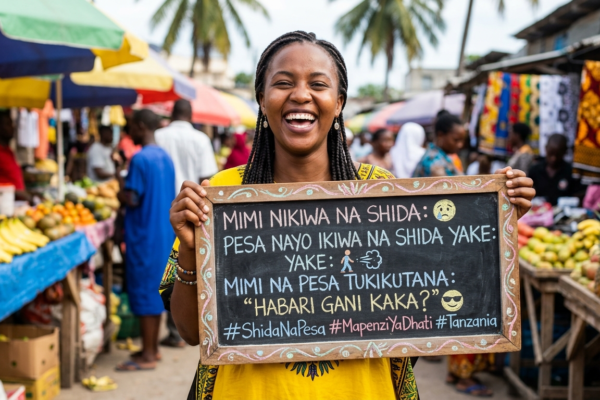 MIMI NIKIWA NA SHIDA: 😢
PESA NAYO IKIWA NA SHIDA YAKE:
YAKE: 🚶💨
MIMI NA PESA TUKIKUTANA:
"HABARI GANI KAKA?" 😎
#ShidaNaPesa #MapenziYaDhati #Tanzania